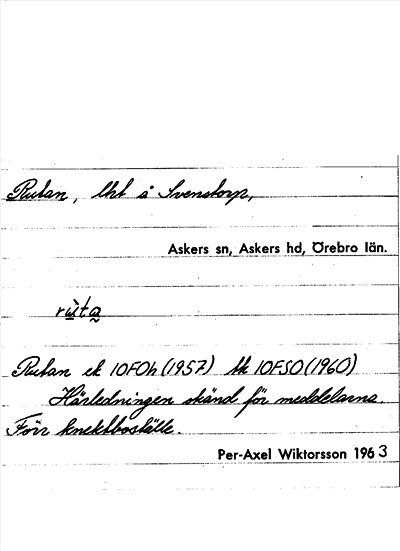 Rutan, lht å Svenstorp,
Askers sn, Askers hd, Örebro län.
rùta̰
Rutan ek 10F0h (1957) tk 10F5O (1960)
Härledningen okänd för meddelarna.
Förr knektboställe.
Per-Axel Wiktorsson 1963